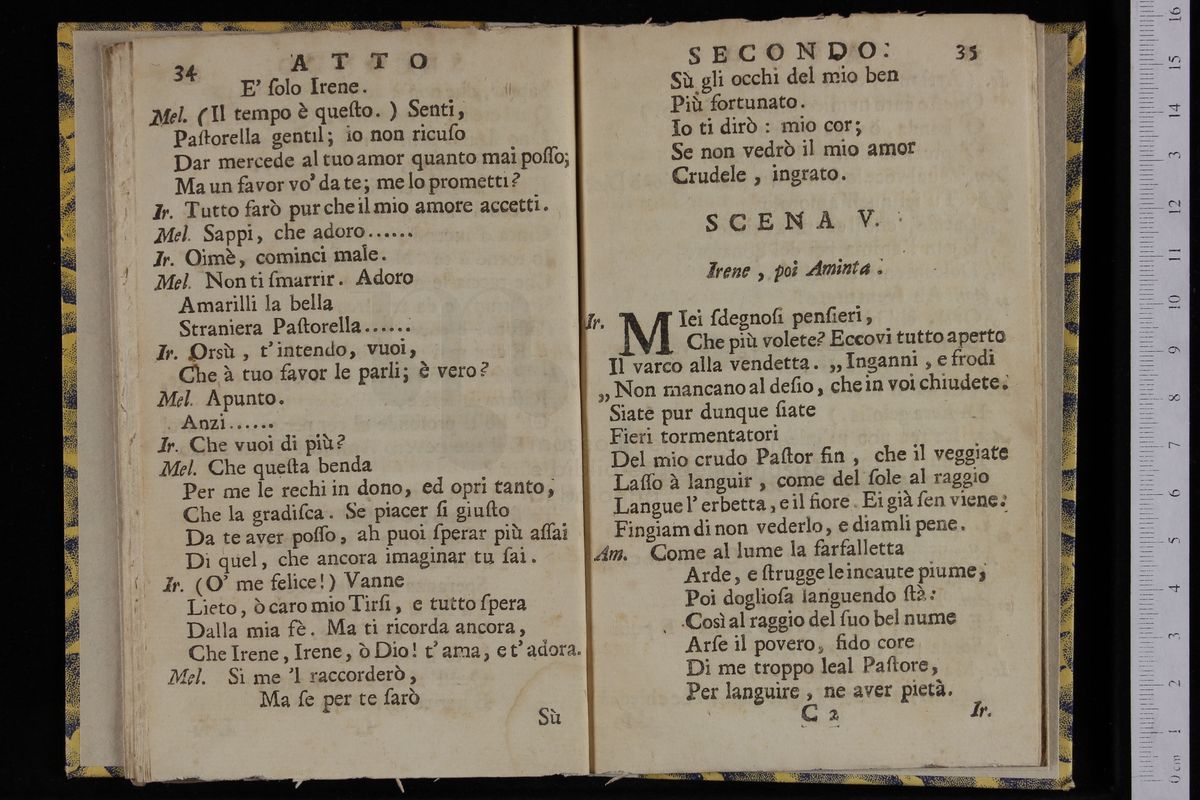 34 ATTO
E' ſolo Irene.
Mel. (Il tempo è queſto. ) Senti,
Paſtorella gentil; io non ricuſo
Dar mercede al tuo amor quanto mai poſſo;
Ma un favor vo' da te; me lo prometti?
Ir. Tutto farò pur che il mio amore accetti.
Mel. Sappi, che adoro......
Ir. Oimè, cominci male.
Mel. Non ti ſmarrir. Adoro
Amarilli la bella
Straniera Paſtorella......
Ir. Orsù, t'intendo, vuoi,
Che à tuo favor le parli; è vero?
Mel. Apunto.
Anzi......
Ir. Che vuoi di più?
Mel. Che queſta benda
Per me le rechi in dono, ed opri tanto,
Che la gradiſca. Se piacer ſi giuſto
Da te aver poſſo, ah puoi ſperar più aſſai
Di quel, che ancora imaginar tu ſai.
Ir. (O' me felice!) Vanne
Lieto, ò caro mio Tirſi, e tutto ſpera
Dalla mia fè. Ma ti ricorda ancora,
Che Irene, Irene, ò Dio! t'ama, e t'adora.
Mel. Si me 'l raccorderò,
Ma ſe per te ſarò
Sù
SECONDO. 35
Sù gli occhi del mio ben
Più fortunato.
Io ti dirò : mio cor;
Se non vedrò il mio amor
Crudele , ingrato.
SCENA V.
Irene , poi Aminta .
Ir. MIei ſdegnoſi penſieri,
Che più volete? Eccovi tutto aperto
Il varco alla vendetta. „Inganni , e frodi
„Non mancano al deſio, che in voi chiudete.
Siate pur dunque ſiate
Fieri tormentatori
Del mio crudo Paſtor fin , che il veggiate
Laſſo à languir , come del ſole al raggio
Langue l'erbetta, e il fiore. Ei già ſen viene.
Fingiam di non vederlo, e diamli pene.
Am. Come al lume la farfalletta
Arde, e ſtrugge le incaute piume,
Poi doglioſa languendo ſtà:
Così al raggio del ſuo bel nume
Arſe il povero, fido core
Di me troppo leal Paſtore,
Per languire , ne aver pietà.
C 2 Ir.
0 cm 1 2 3 4 5 6 7 8 9 10 11 12 13 14 15 16